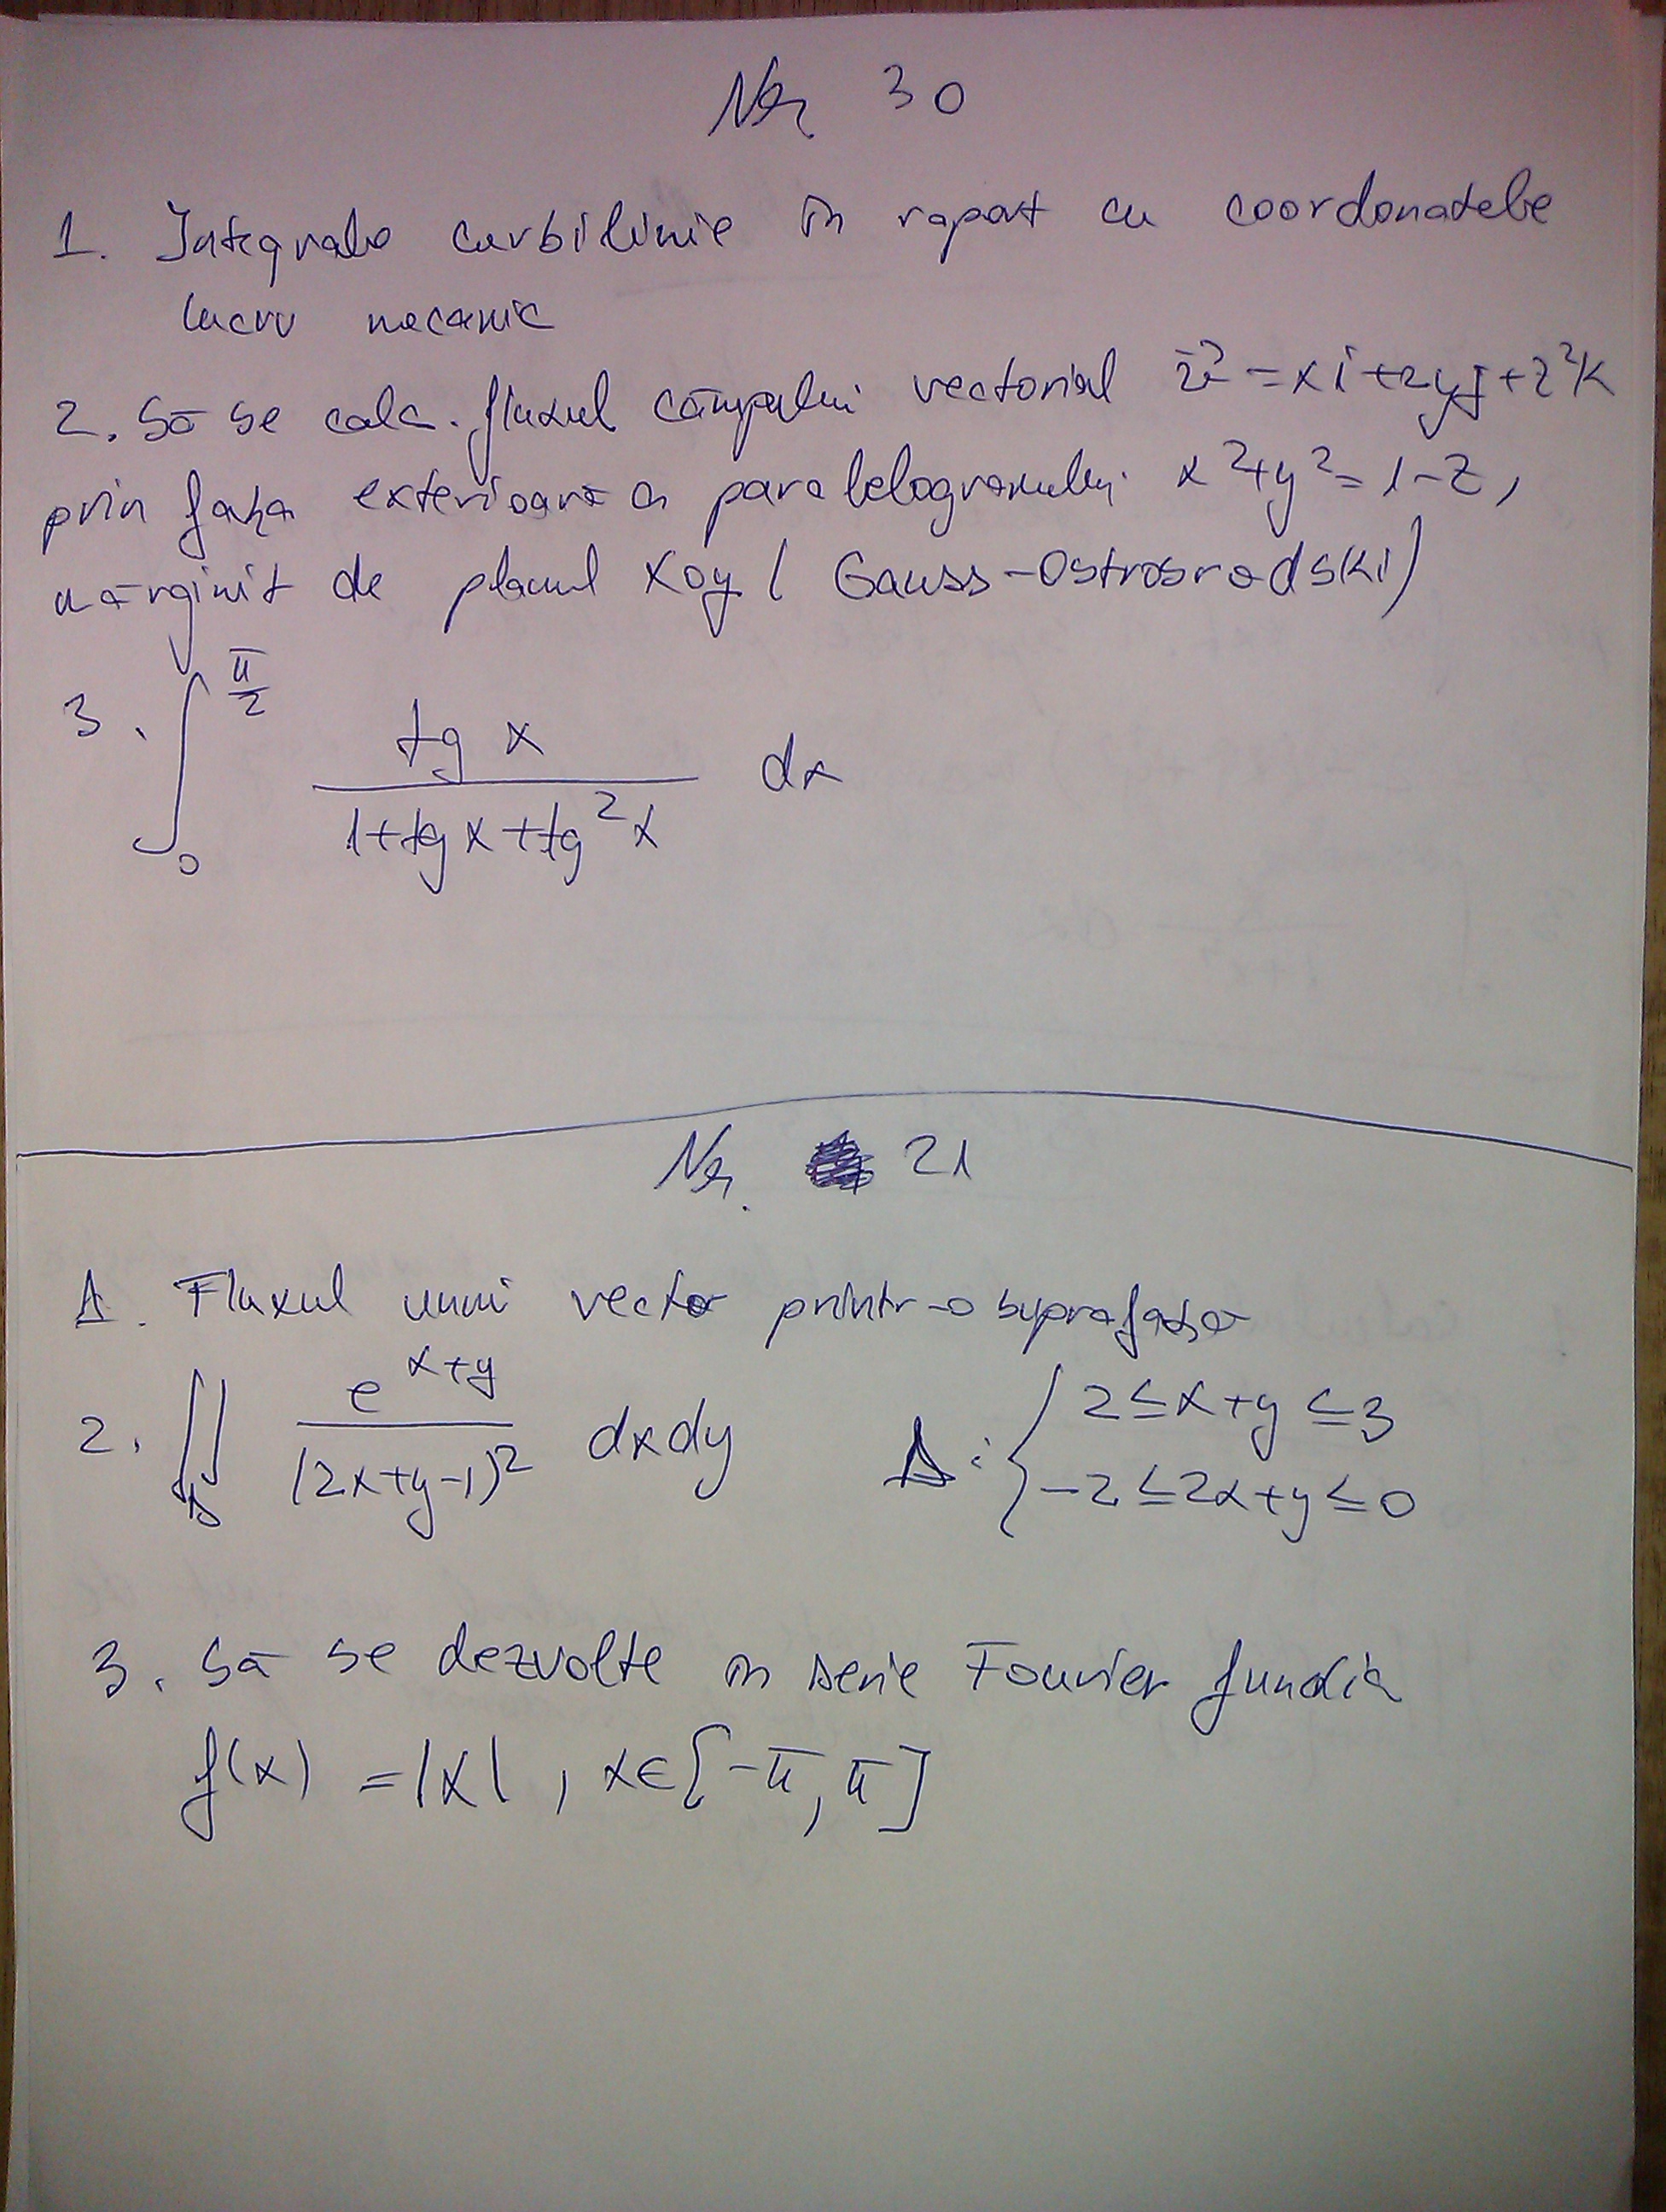 Nr 30
1. Integrala curbilinie în raport cu coordonatele
lucru mecanic
2. Să se calc. fluxul câmpului vectorial v̄² = xi + 2yj + z²k
prin fața exterioară a paralelogramului x²+y² = 1-z,
mărginit de planul xoy ( Gauss-Ostrosradski)
3. ∫₀^(π/2) tg x / (1+tg x+tg²x) dx
Nr. 21
1. Fluxul unui vector printr-o suprafață
2. ∬_D e^(x+y) / (2x+y-1)² dxdy D: { 2≤x+y≤3
-2≤2x+y≤0
3. Să se dezvolte în serie Fourier funcția
f(x) = |x|, x∈[-π, π]